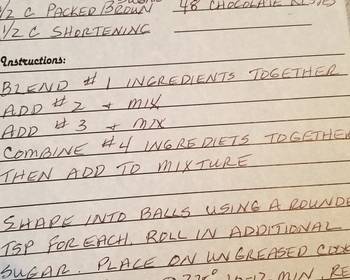 1/2 C PACKED BROWN 48 CHOCOLATE KISSES
1/2 C SHORTENING
Instructions:
BLEND #1 INGREDIENTS TOGETHER
ADD #2 & MIX
ADD #3 & MIX
COMBINE #4 INGREDIETS TOGETHER
THEN ADD TO MIXTURE
SHAPE INTO BALLS USING A ROUNDE
TSP FOR EACH. ROLL IN ADDITIONAL
SUGAR. PLACE ON UNGREASED
10-12 MIN. RE